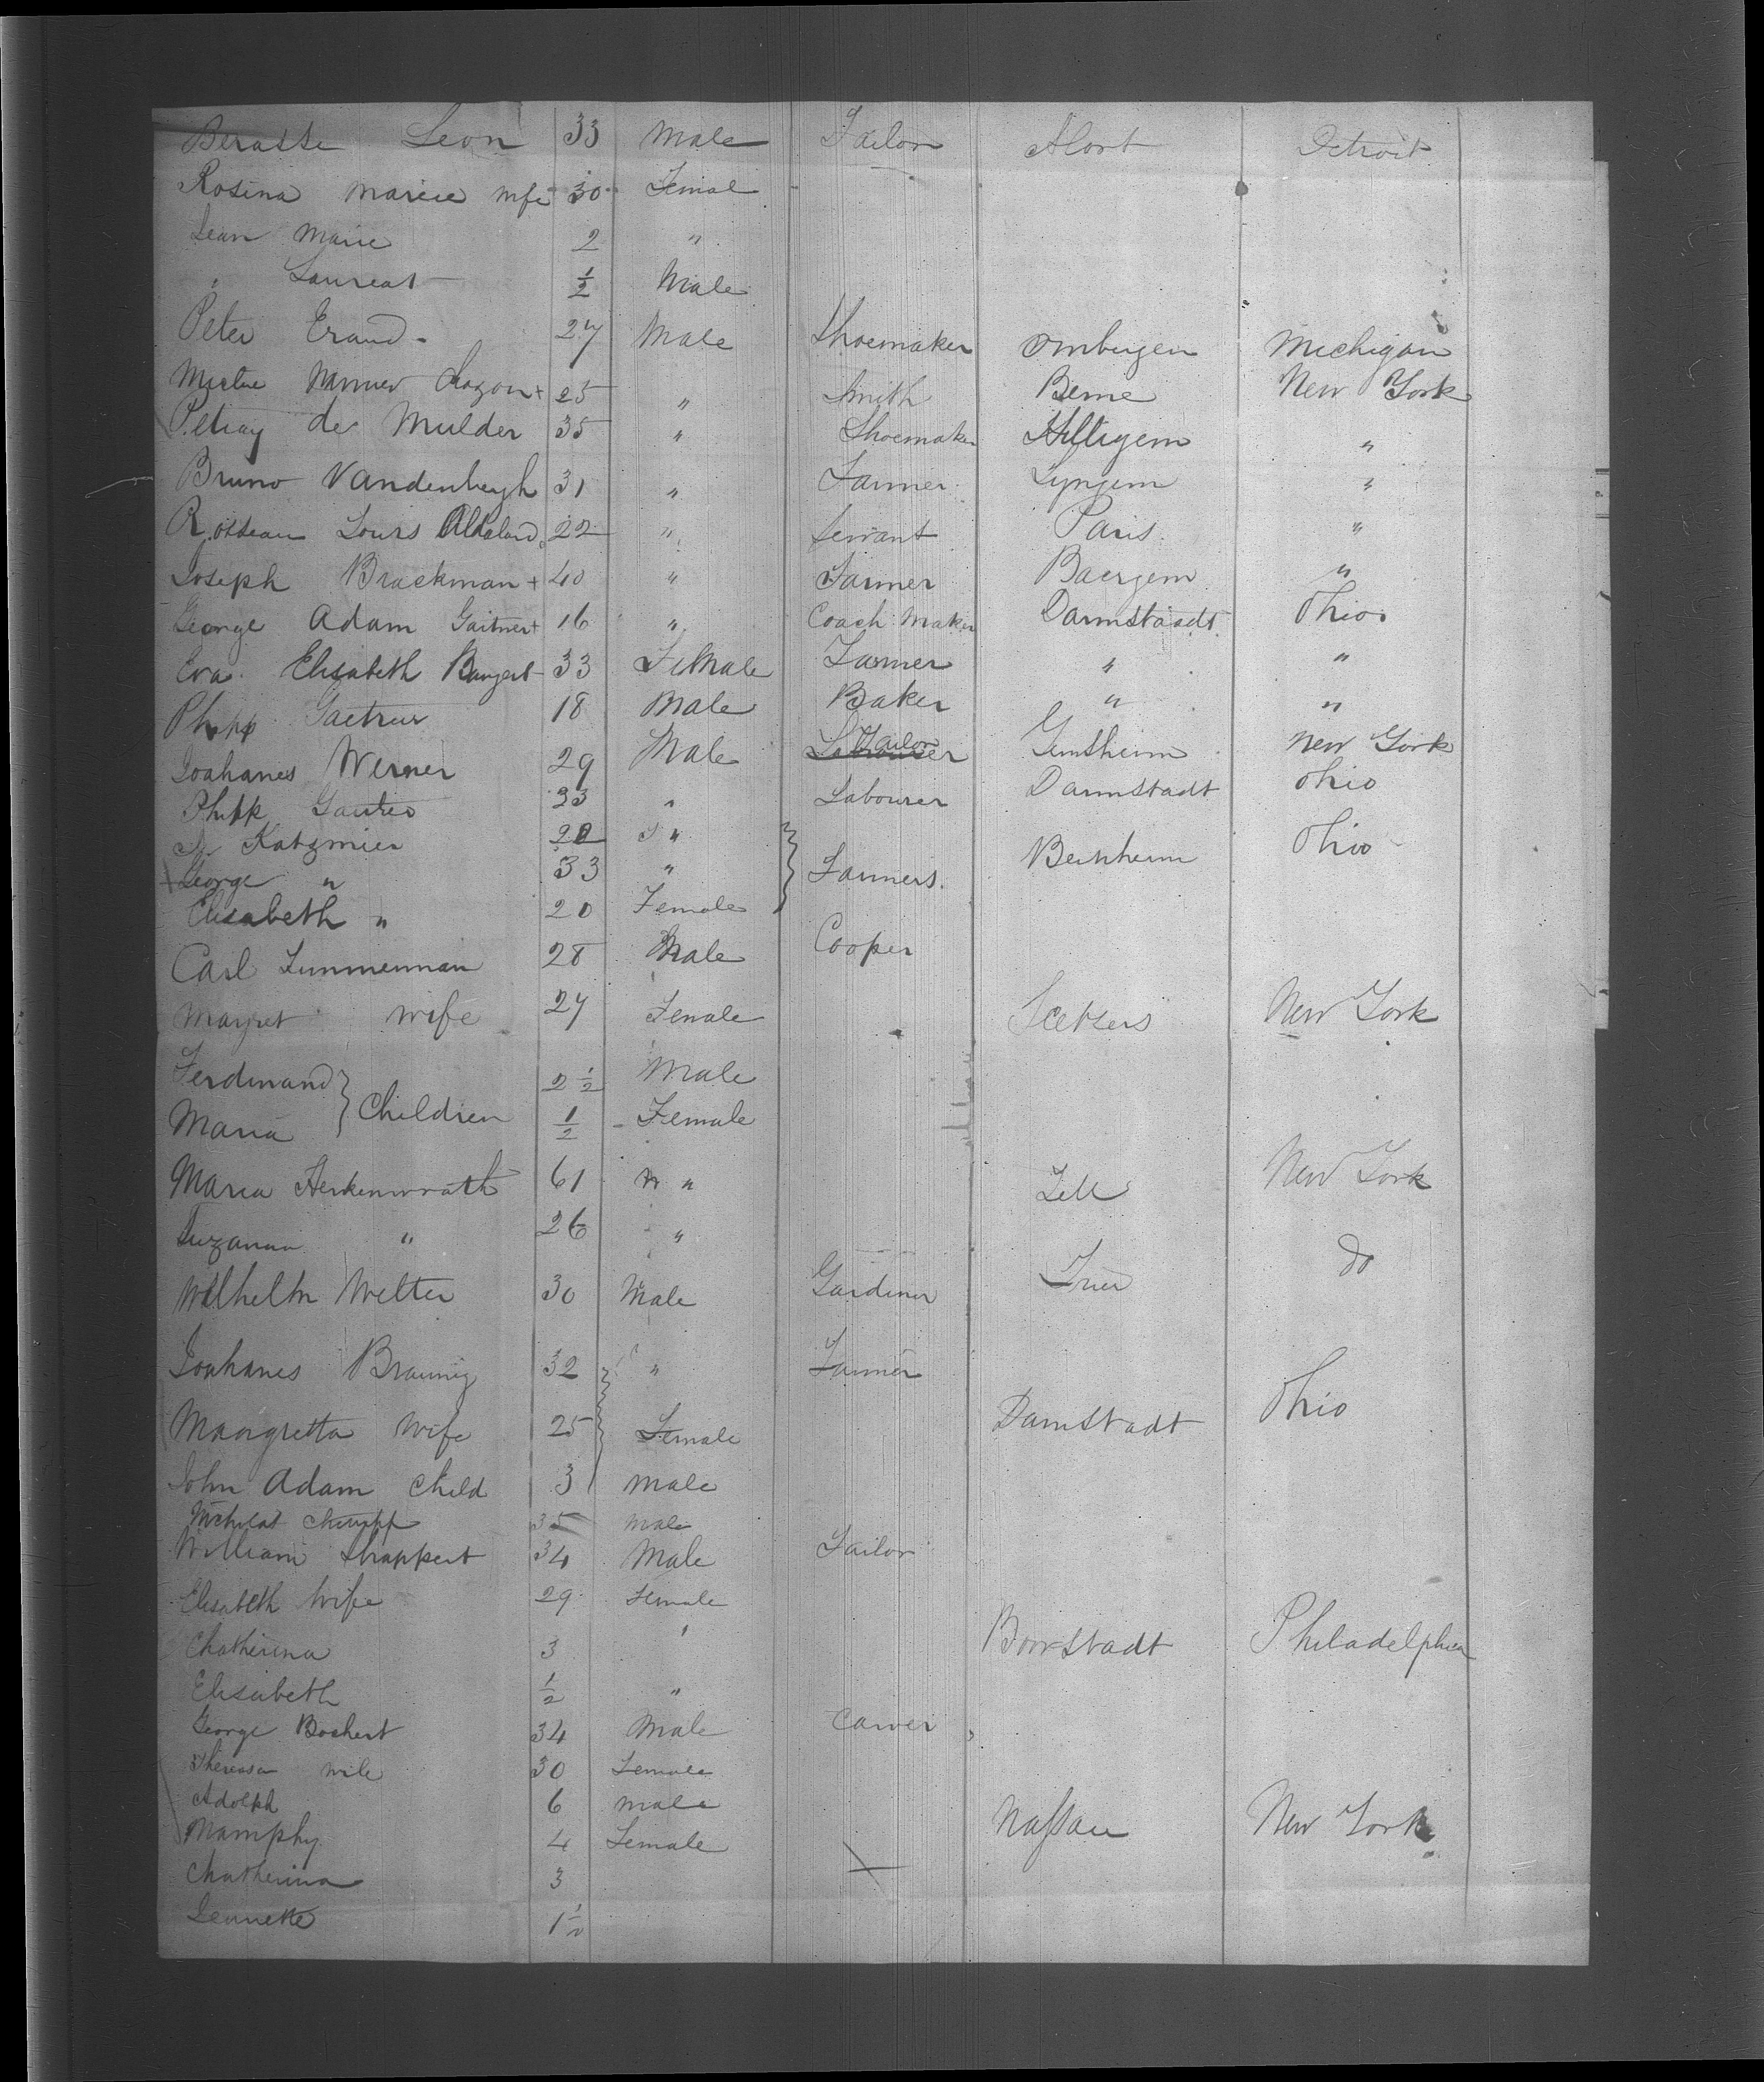 Berasse Leon 33 Male Tailor Alort Detroit
Rosina Mariee wife 30 Femal
Jean Marie 2 "
" Laureat 1/2 Male
Peter Eraud - 27 Male Shoemaker Ombergen Michigan
25 " Smith Berne New York
de Mulder 35 " Shoemaker Hiltigem "
Bruno Vandenbergh 31 " Farmer Syngem "
Louis 22 " Servant Paris "
Joseph Brackman + 40 " Farmer Baergem "
George Adam Gaitner + 16 " Coach Maker Darmstaadt Ohio
Eva Elisabeth Bangert 33 FeMale Farmer " "
Philipp 18 Male Baker " "
Joahanes Werner 29 Male Tailor Gemsheim New York
Philipp 33 " Labourer Darmstadt Ohio
Katzmier "
George " 33 " Farmers Ohio
Elisabeth " 20 Female
Carl Zummerman 28 Male Cooper
Margret wife 27 Female New York
Ferdinand 2 1/2 Male
Maria } Children 1/2 Female
Maria Herkenwrath 61 " Zell New York
Suzanna " 26 "
Wilhelm Welter 30 Male Gardiner Trier do
Joahanes Braunig 32 " Farmer
Maargretta Wife 25 Female Darmstadt Ohio
John Adam Child 3 male
35 male
William Shappert 34 Male Tailor
Elisabeth Wife 29 Female
Chatherina 3 " Boorstadt Philadelphia
Elisabeth 1/2 "
George Boshert 34 Male Carver
Theresa wife 30 Female
Adolph 6 male
Mamphy 4 Female Nassau New York
Chatherina 3
Jennette 1 1/2